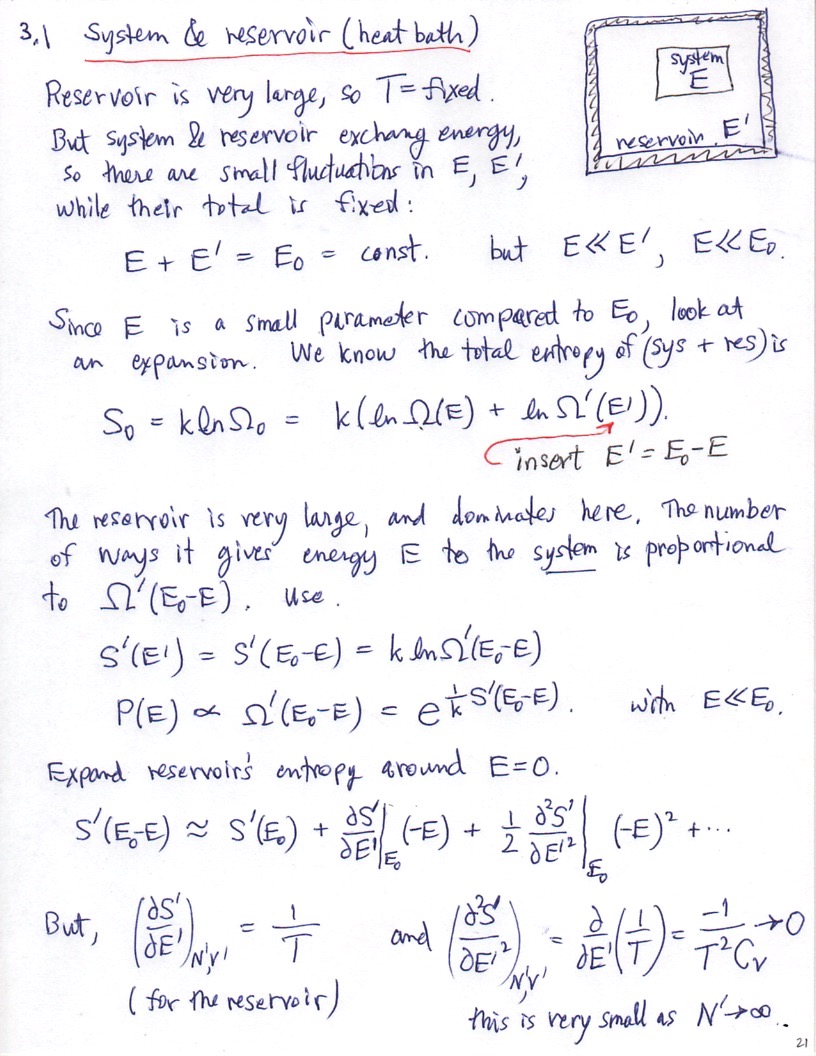 3.1 System & reservoir (heat bath)
system
E
reservoir E'
Reservoir is very large, so T = fixed.
But system & reservoir exchang energy,
so there are small fluctuations in E, E',
while their total is fixed:
E + E' = E₀ = const. but E ≪ E', E ≪ E₀.
Since E is a small parameter compared to E₀, look at
an expansion. We know the total entropy of (sys + res) is
S₀ = k ln Ω₀ = k(ln Ω(E) + ln Ω'(E')).
insert E' = E₀-E
The reservoir is very large, and dominates here. The number
of ways it gives energy E to the system is proportional
to Ω'(E₀-E). Use.
S'(E') = S'(E₀-E) = k ln Ω'(E₀-E)
P(E) ∝ Ω'(E₀-E) = e^{1/k S'(E₀-E)}. with E ≪ E₀.
Expand reservoir's entropy around E=0.
S'(E₀-E) ≈ S'(E₀) + ∂S'/∂E'|_{E₀} (-E) + 1/2 ∂²S'/∂E'²|_{E₀} (-E)² + ...
But, (∂S'/∂E')_{N',V'} = 1/T and (∂²S'/∂E'²)_{N',V'} = ∂/∂E' (1/T) = -1/T²C_V → 0
(for the reservoir)
this is very small as N' → ∞..
21